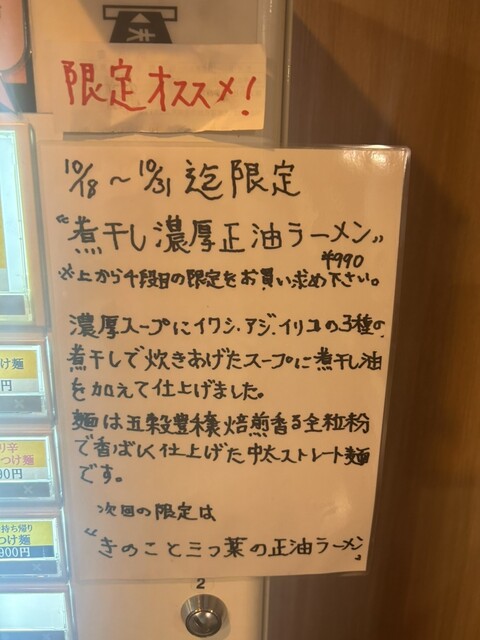 限定オススメ!
10/18〜10/31迄限定
“煮干し濃厚正油ラーメン”
¥990
※上から十段目の限定をお買い求め下さい。
濃厚スープにイワシ、アジ、イリコの3種の
煮干しで炊きあげたスープに煮干し油
を加えて仕上げました。
麺は五穀豊穣焙煎香る全粒粉
で香ばしく仕上げた中太ストレート麺
です。
次回の限定は
“きのこと三つ葉の正油ラーメン”
け麺
円
辛
つけ麺
90円
持ち帰り
つけ麺
900円
2